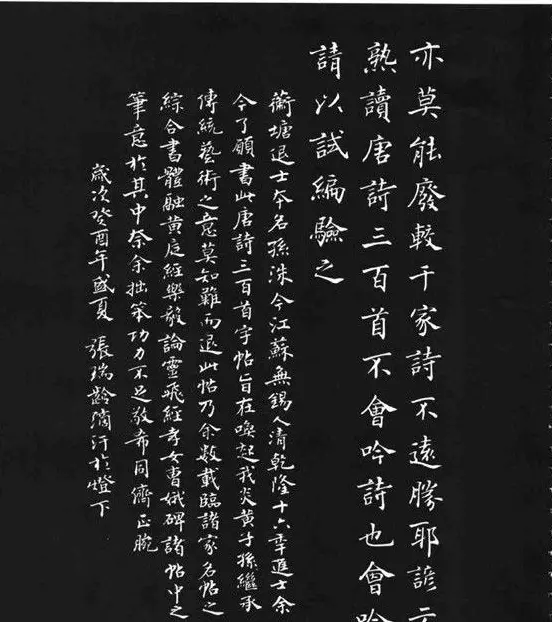 亦莫能廢較千家詩不遠勝耶諺云
熟讀唐詩三百首不會吟詩也會吟
請以試編驗之
蘅塘退士本名孫洙今江蘇無錫人清乾隆十六年進士余
今了願書此唐詩三百首字帖旨在喚起我炎黃子孫繼承
傳統藝術之意莫知難而退此帖乃余數載臨諸家名帖之
綜合書體融黃庭經樂毅論靈飛經孝女曹娥碑諸帖中之
筆意於其中奈余拙笨功力不足敬希同儕正腕
歲次癸酉年盛夏 張瑞齡滴汗於燈下